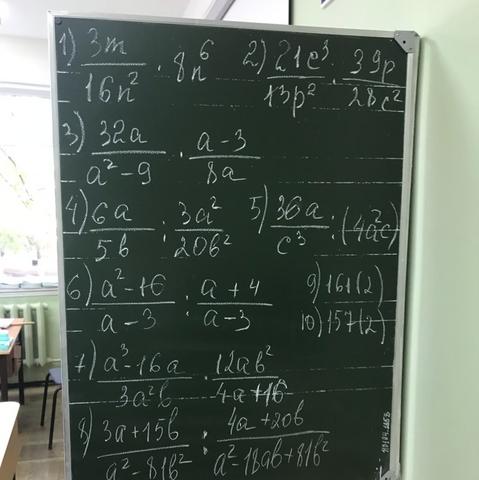 1) 3m/16n² · 8n⁶ 2) 21c³/13p² · 39p/28c²
3) 32a/a²-9 · a-3/8a
4) 6a/5b : 3a²/20b² 5) 36a/c³ : (4a²c)
6) a²-16/a-3 : a+4/a-3 9) 161(2)
10) 157(2)
7) a³-16a/3a²b · 12ab²/4a+16
8) 3a+15b/a²-81b² : 4a+20b/a²-18ab+81b²